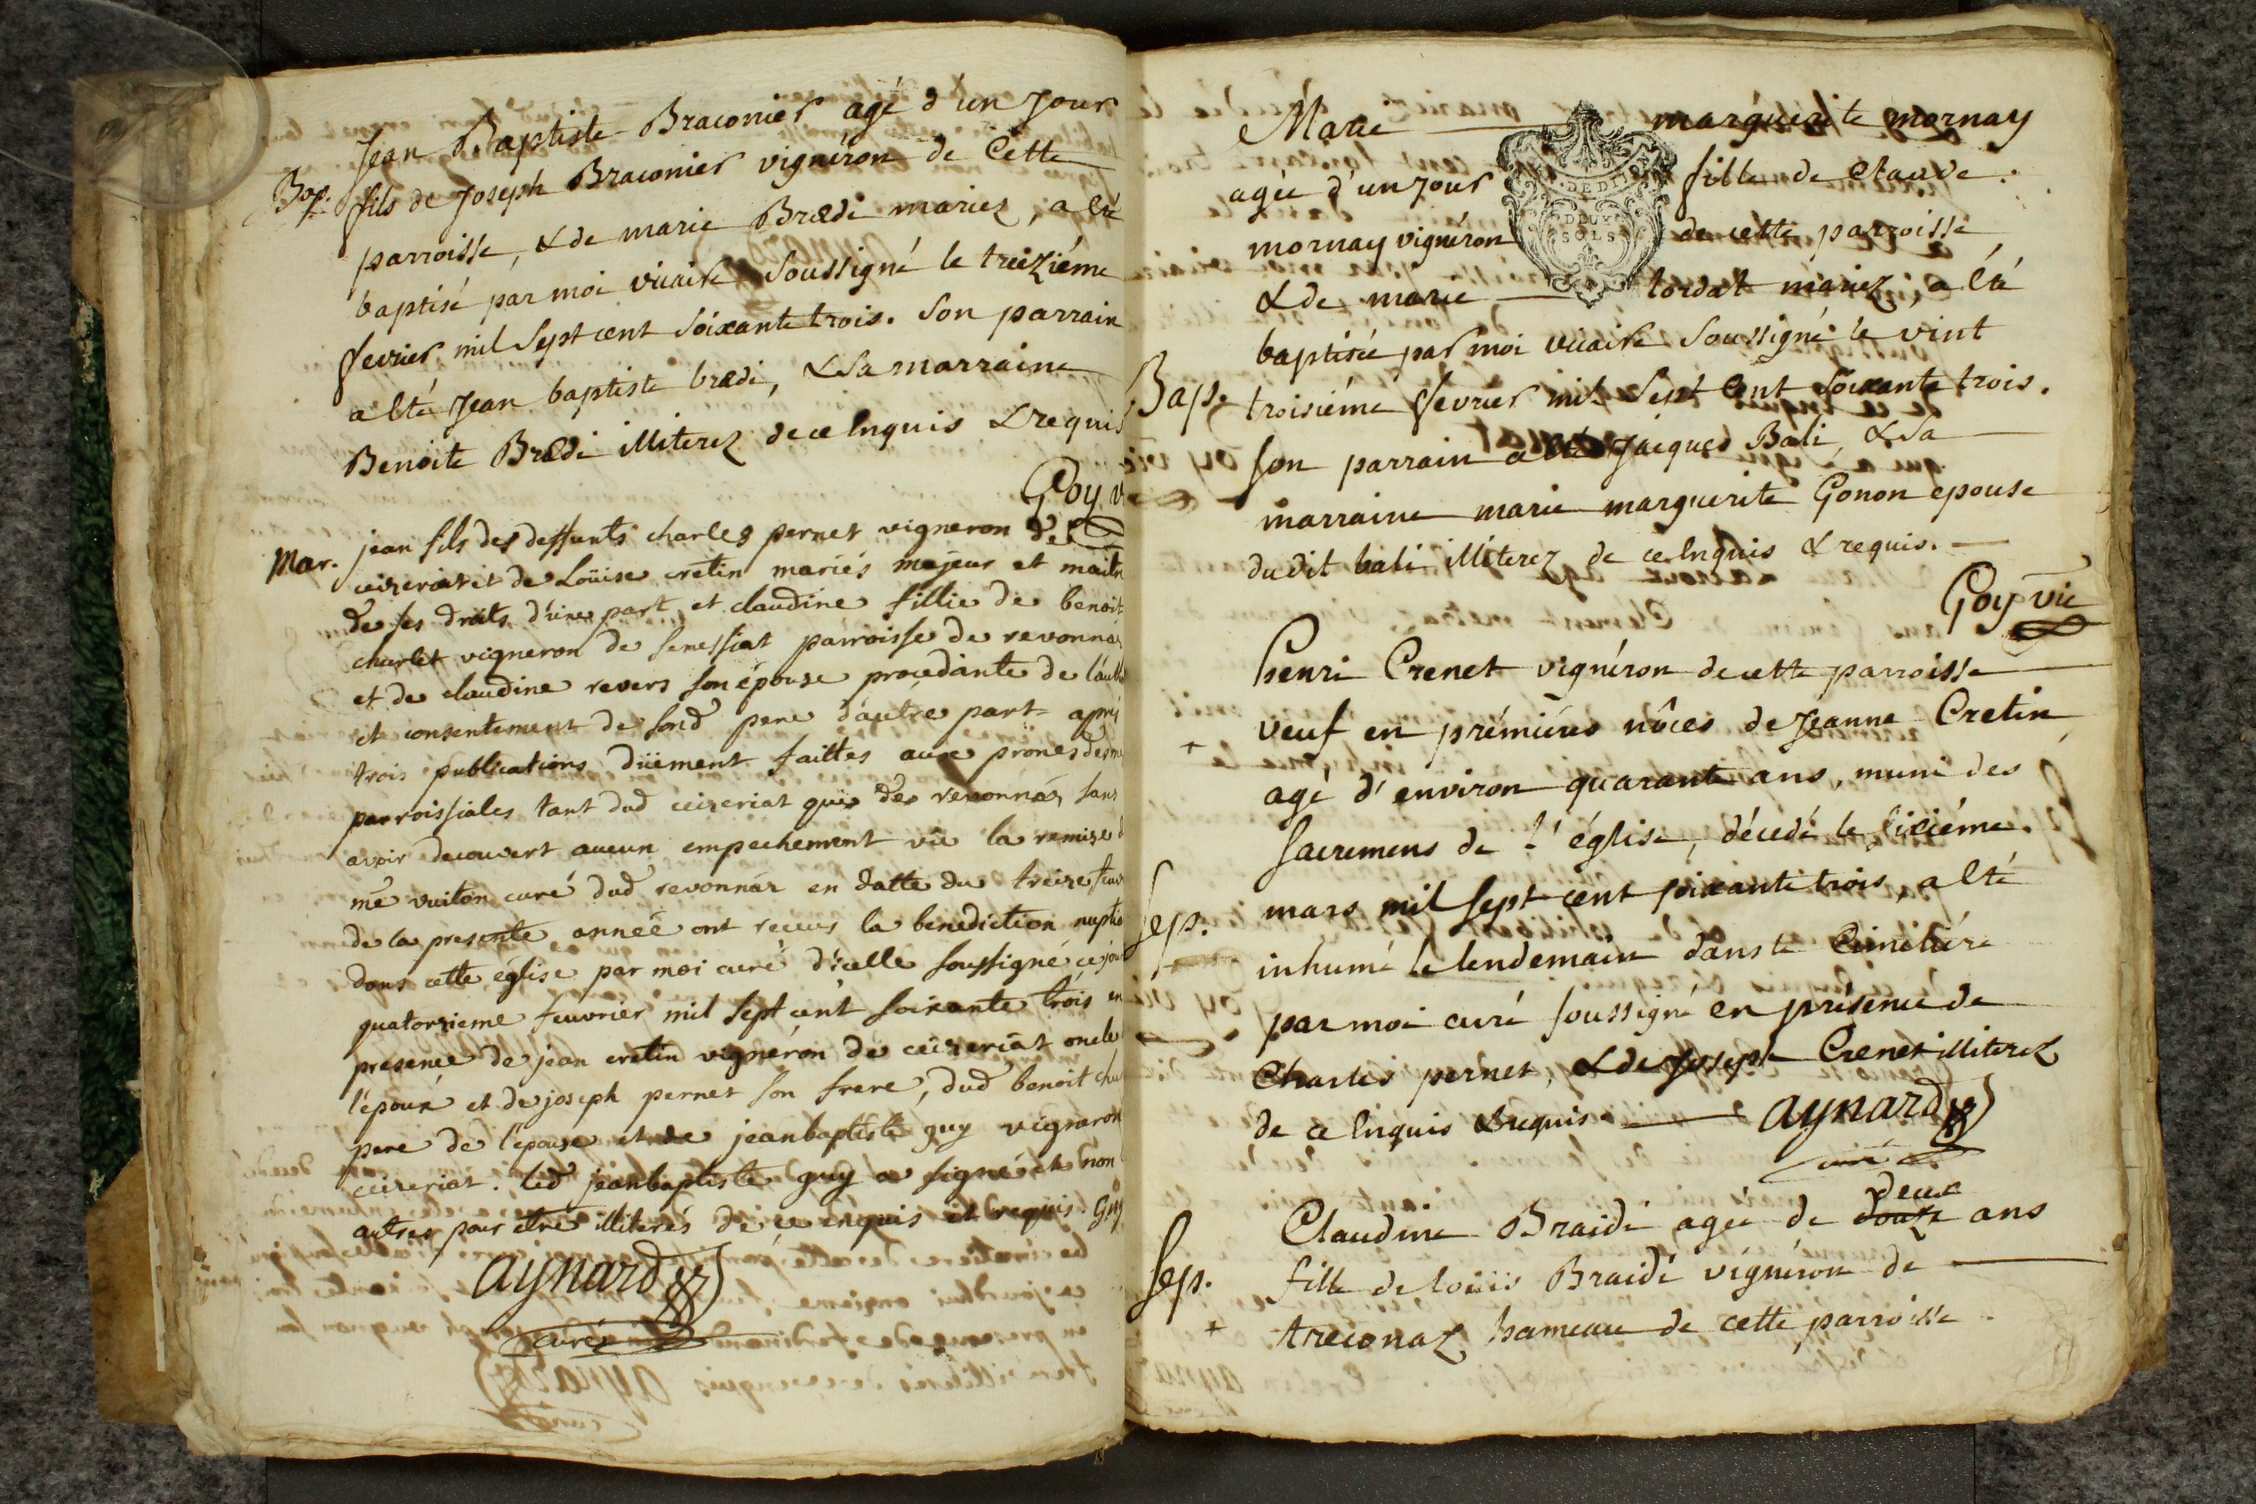 Bap.
Jean Baptiste Braconier agé d'un Jour
fils de Joseph Braconier vignéron de Cette
parroisse, & de marie Brædi mariez, a eté
baptisé par moi vicaire Soussigné le treiziéme
fevrier mil Sept cent Soixante trois. Son parrain
a eté Jean baptiste brædi, & Sa marraine
Benoite Brædi illiterez de ce Enquis & requis
Goy v
Mar.
jean fils des deffunts charles pernet vigneron de
ceizeriat et de Loüise cretin mariés majeur et maitr
de ses droits d'une part, et claudine fillie de benoit
charlet vigneron de senessiat parroisse de revonnas
et de claudine revers son épouse procedante de l'auth
et consentement de sond pere d'autre part apres
trois publications düement faittes aux prones des me
parroissiales tant dud ceizeriat que de revonnas sans
avoir decouvert aucun empechement vû la remise d
me vuiton curé dud revonnas en datte du treize feuv
de la presente année ont recus la benediction nuptia
dans cette église par moi curé d'icelle soussigné ce jou
quatorzieme feuvrier mil sept cent soixante trois en
presence de jean cretin vignéron de ceizeriat oncle
l'epoux et de joseph pernet son frere, dud benoit cha
pere de l'epouse et de jeanbaptiste guy vigneron
ceizeriat. led jeanbaptiste guy a signé et non
autres pour etre illiterés de ce enquis et requis. Guy
aynard
curé
Marie marguerite mornay
agée d'un Jour fille de Claude
mornay vignéron de cette parroisse
& de marie tordat mariez, a eté
baptisée par moi vicaire Soussigné le vint
Bap.
troisiéme fevrier mil Sept Cent Soixante trois.
Son parrain a eté Jacques Bali, & Sa
marraine marie marguerite Gonon epouse
dudit bali illiterez de ce Enquis & requis.
Goy vic
DE DIJON
DEUX
SOLS
henri Crenet vignéron de cette parroisse
veuf en prémiéres nôces de Jeanne Cretin,
+
agé d'environ quarante ans, muni des
sacremens de l'église, décedé le sixiéme
mars mil Sept cent soixante trois, a eté
Sep.
inhumé le lendemain dans le Cimetiére
par moi curé soussigné en présence de
Charles pernet, & de Joseph Crenet illiterez
de ce Enquis & requis. aynard
curé
deux
Claudine Braidi agée de douze ans
Sep.
fille de loüis Braidi vignéron de
+
treconaz hameau de cette parroisse